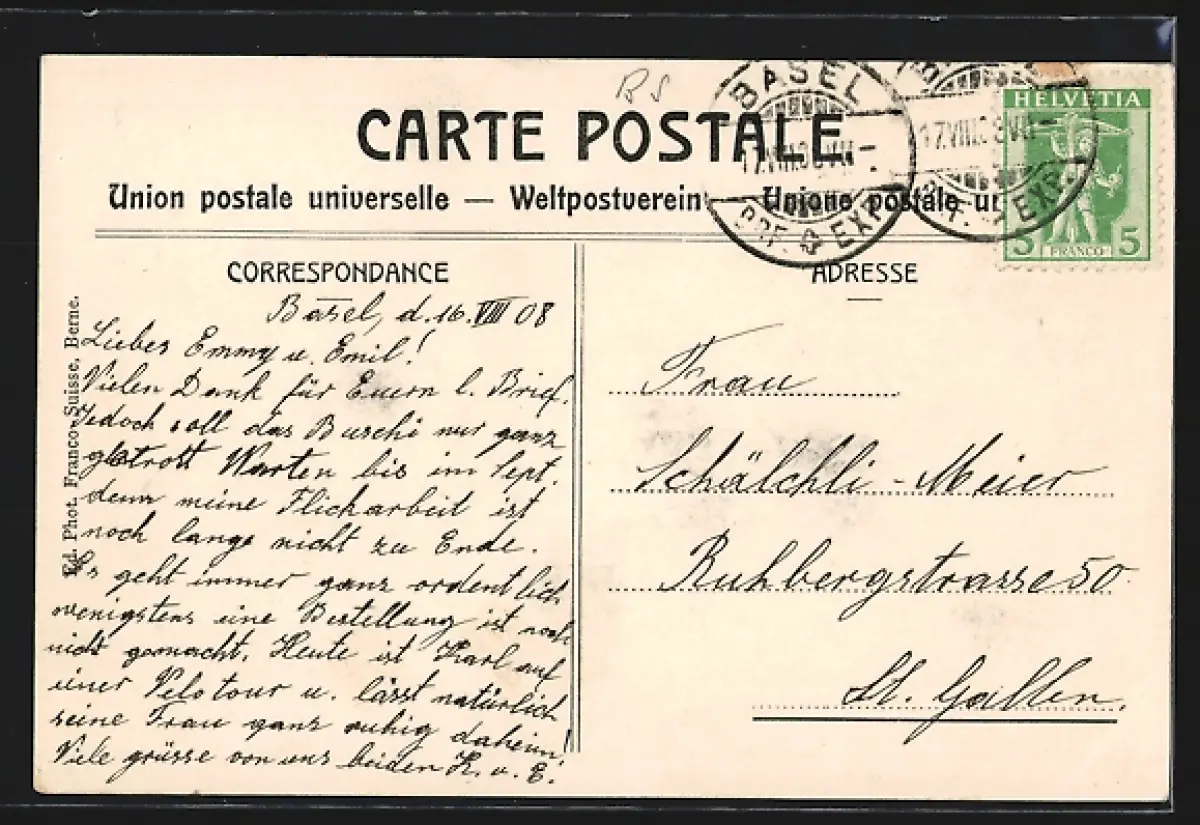 BS
CARTE POSTALE
Union postale universelle — Weltpostverein — Unione postale
BASEL
17.VIII.08.VII
EXP.
17.VIII.08.VII
EXP.
HELVETIA
5 FRANCO 5
CORRESPONDANCE
Basel, d. 16. VIII 08
Liebes Emmy u. Emil!
Vielen Dank für Euern l. Brief.
Jedoch soll das Buschi nur ganz
Warten bis im Sept.
denn meine Flickarbeit ist
noch lange nicht zu Ende.
Es geht immer ganz ordentlich
wenigstens eine Bestellung ist noch
nicht gemacht. Heute ist Karl auf
einer Velotour u. lässt natürlich
seine Frau ganz ruhig daheim!
Viele grüsse von uns beiden K. u. E.
Ed. Phot. Franco-Suisse, Berne.
ADRESSE
Frau
Schälchli-Meier
Ruhbergstrasse 50
St. Gallen.